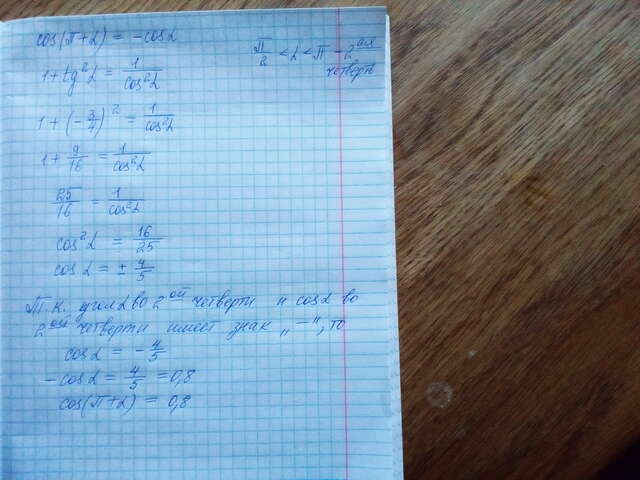 cos(π+α) = -cosα
π/2 < α < π - 2ая
четверть
1+tg²α = 1/cos²α
1+(-3/4)² = 1/cos²α
1+9/16 = 1/cos²α
25/16 = 1/cos²α
cos²α = 16/25
cosα = ±4/5
Т.к. угол α во 2ой четверти и cosα во
2ой четверти имеет знак „-", то
cosα = -4/5
-cosα = 4/5 = 0,8
cos(π+α) = 0,8